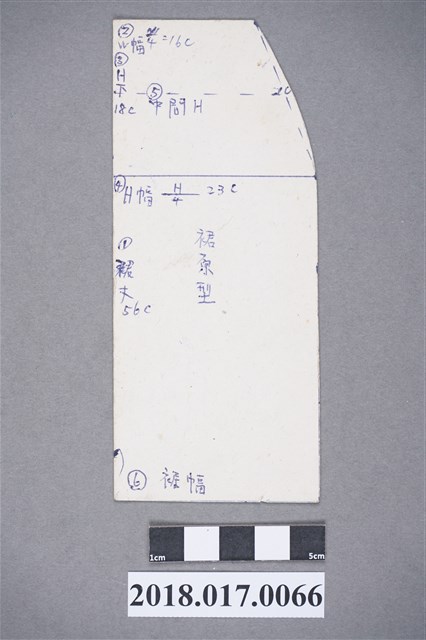 ② W幅 W/4=16C
③ H下 18C
⑤ 中間H
2C
④ H幅 H/4 23C
① 裙丈 56C
裙原型
⑥ 裙幅
1cm 5cm
2018.017.0066